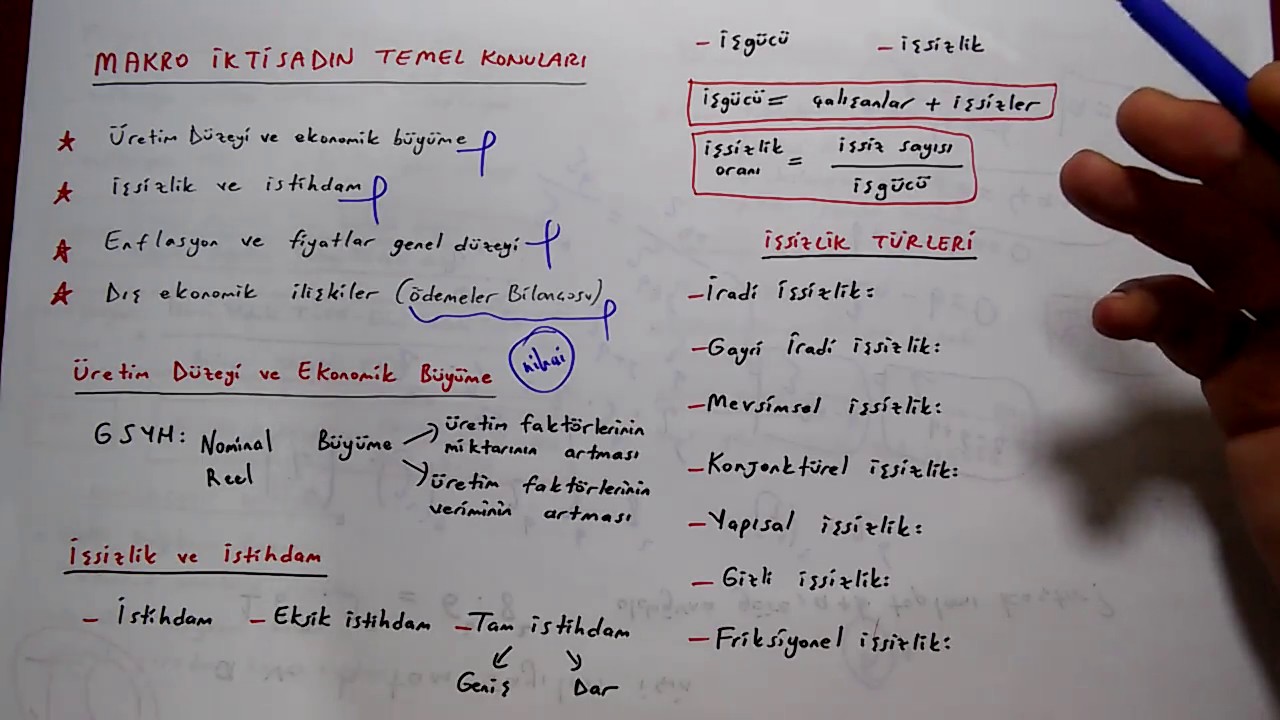 MAKRO İKTİSADIN TEMEL KONULARI
Üretim Düzeyi ve ekonomik büyüme
işsizlik ve istihdam
Enflasyon ve fiyatlar genel düzeyi
Dış ekonomik ilişkiler (ödemeler Bilançosu)
nihai
Üretim Düzeyi ve Ekonomik Büyüme
GSYH: Nominal
Reel
Büyüme
üretim faktörlerinin
miktarının artması
üretim faktörlerinin
veriminin artması
İşsizlik ve İstihdam
- İstihdam - Eksik istihdam - Tam istihdam
Geniş Dar
- işgücü - işsizlik
işgücü = çalışanlar + işsizler
işsizlik oranı = işsiz sayısı
işgücü
İŞSİZLİK TÜRLERİ
- İradi işsizlik:
- Gayri İradi işsizlik:
- Mevsimsel işsizlik:
- Konjonktürel işsizlik:
- Yapısal işsizlik:
- Gizli işsizlik:
- Friksiyonel işsizlik: